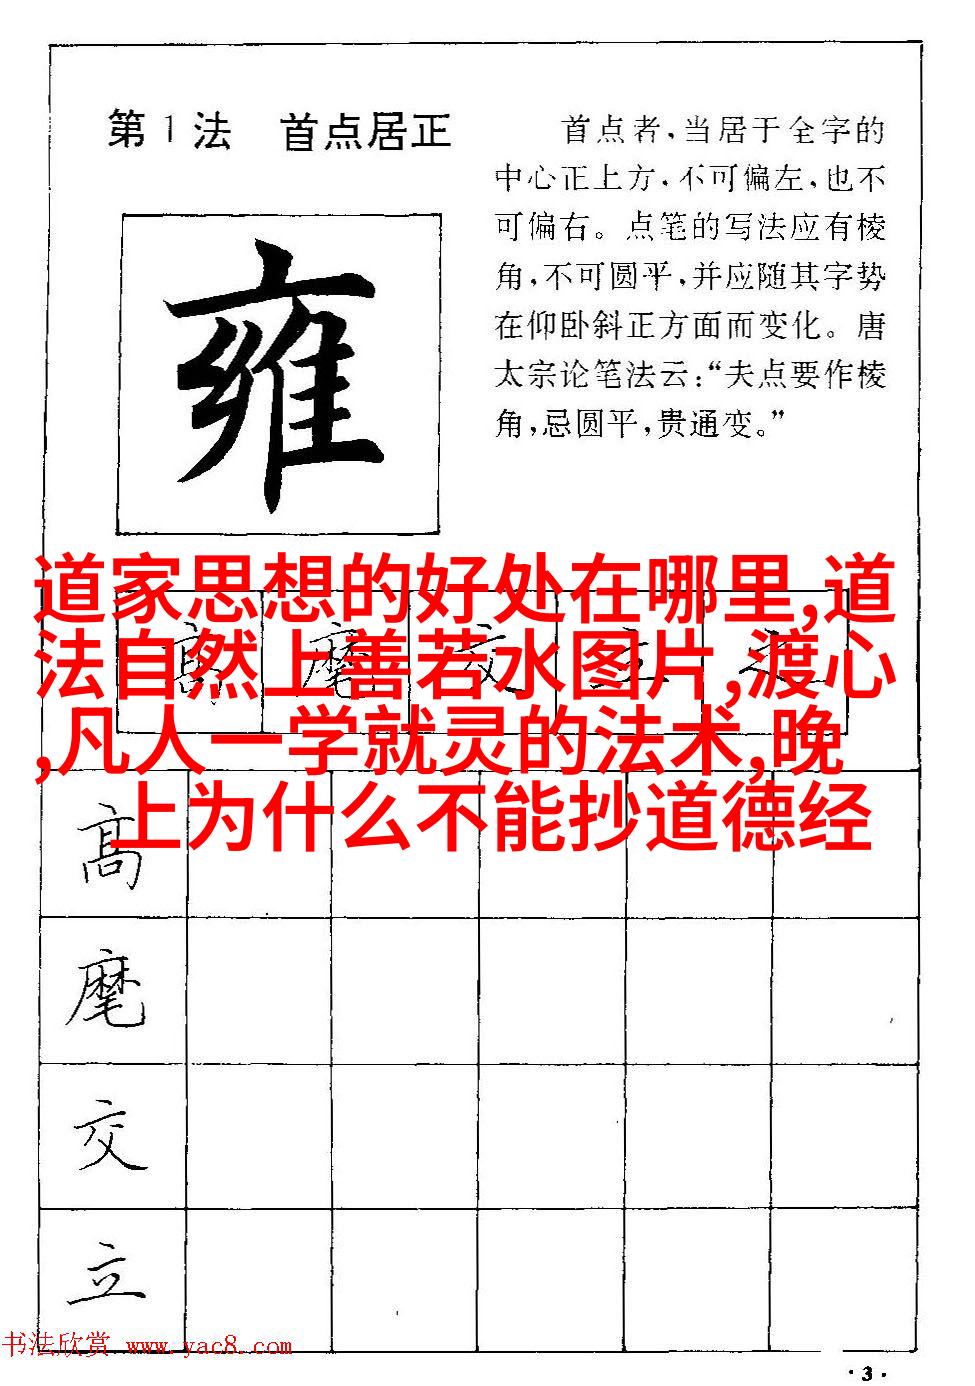 第1法 首点居正
首点者，当居于全字的
中心正上方，不可偏左，也不
可偏右。点笔的写法应有棱
角，不可圆平，并应随其字势
在仰卧斜正方面而变化。唐
太宗论笔法云：“夫点要作棱
角，忌圆平，贵通变。”
雍
道家思想的好处在哪里,道
法自然上善若水图片,渡心
,凡人一学就灵的法术,晚
上为什么不能抄道德经
高
麾
交
立
书法欣赏 www.yac8.com
·3·